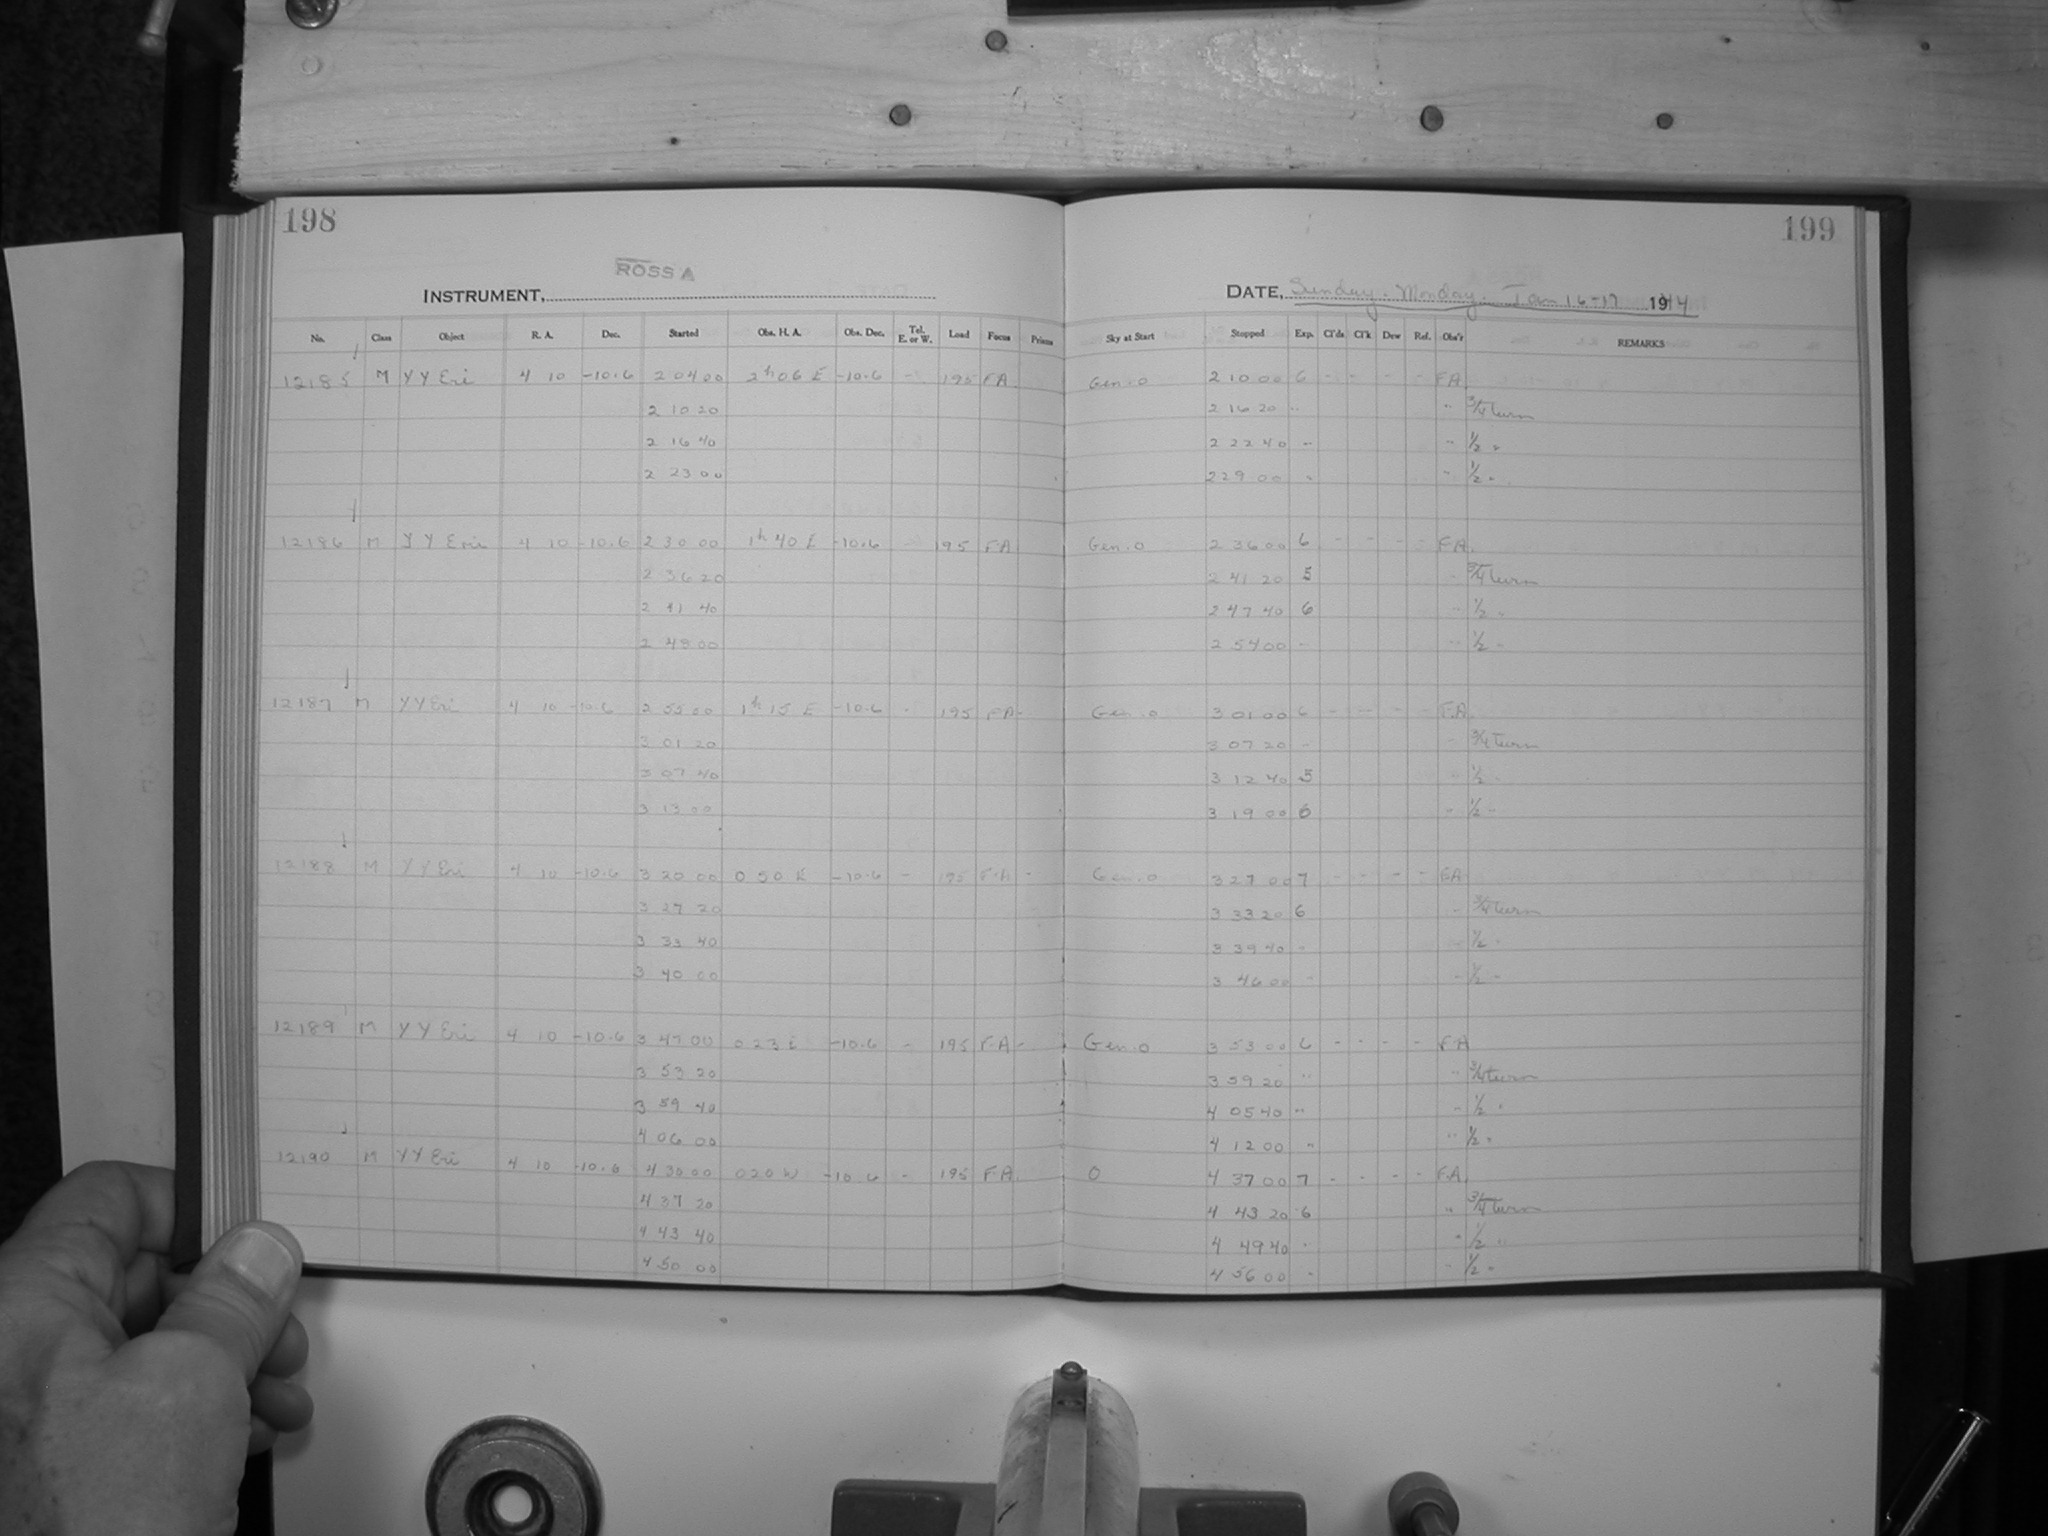 198
199
ROSS A
INSTRUMENT,
DATE, Sunday-Monday Jan 16-17 1944
No. Class Object R. A. Dec. Started Obs. H. A. Obs. Dec. Tel. E. or W. Load Focus Prisms Sky at Start Stopped Exp. Cl'ds Cl'k Dew Ref. Obs'r REMARKS
12185 M YY Eri 4 10 -10.6 2 04 00 2h 06 E -10.6 - 195 FA Gen. 0 2 10 00 6 - - - - FA
2 10 20 2 16 20 " " 3/4 turn
2 16 40 2 22 40 " " 1/2 "
2 23 00 2 29 00 " " 1/2 "
12186 M YY Eri 4 10 -10.6 2 30 00 1h 40 E -10.6 - 195 FA Gen. 0 2 36 00 6 - - - - FA
2 36 20 2 41 20 5 " 3/4 turn
2 41 40 2 47 40 6 " 1/2 "
2 48 00 2 54 00 " " 1/2 "
12187 M YY Eri 4 10 -10.6 2 55 00 1h 15 E -10.6 - 195 FA - Gen. 0 3 01 00 6 - - - - FA
3 01 20 3 07 20 " " 3/4 turn
3 07 40 3 12 40 5 " 1/2 "
3 13 00 3 19 00 6 " 1/2 "
12188 M YY Eri 4 10 -10.6 3 20 00 0 50 E -10.6 - 195 FA - Gen. 0 3 27 00 7 - - - - FA
3 27 20 3 33 20 6 " 3/4 turn
3 33 40 3 39 40 " " 1/2 "
3 40 00 3 46 00 " " 1/2 "
12189 M YY Eri 4 10 -10.6 3 47 00 0 23 E -10.6 - 195 FA - Gen. 0 3 53 00 6 - - - - FA
3 53 20 3 59 20 " " 3/4 turn
3 59 40 4 05 40 " " 1/2 "
4 06 00 4 12 00 " " 1/2 "
12190 M YY Eri 4 10 -10.6 4 30 00 0 20 W -10.6 - 195 FA 0 4 37 00 7 - - - - FA
4 37 20 4 43 20 6 " 3/4 turn
4 43 40 4 49 40 " " 1/2 "
4 50 00 4 56 00 " " 1/2 "